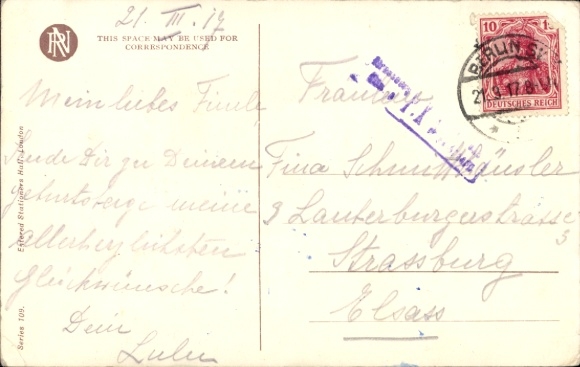 21. III. 17
RN
THIS SPACE MAY BE USED FOR
CORRESPONDENCE
Mein liebes Finele
Sende Dir zu Deinem
Geburtstage meine
allerherzlichsten
Glückwünsche!
Dein
Entered Stationers Hall, London
Series 109.
10
BERLIN
21.3.17.8
DEUTSCHES REICH
Fräulein
Fina
3 Lauterburgerstrasse
3
Strassburg
Elsass